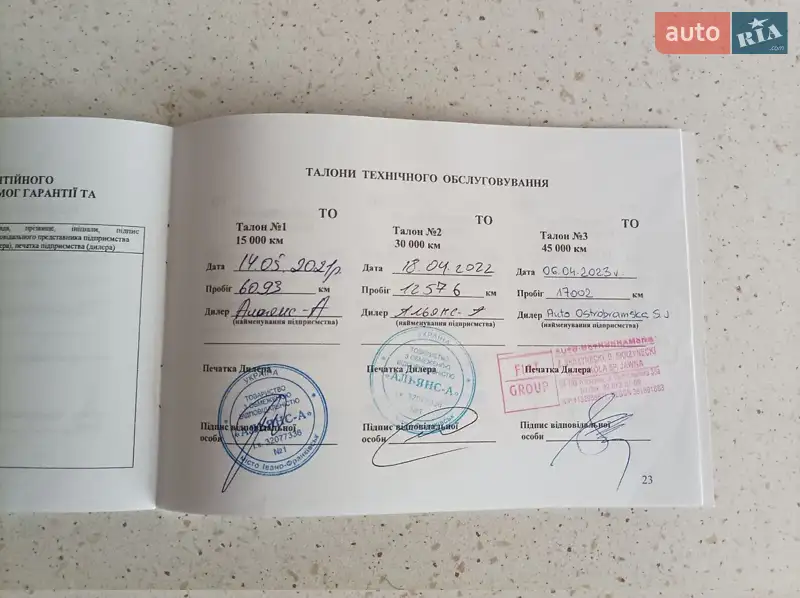 auto RIA .com
НТІЙНОГО
МОГ ГАРАНТІЇ ТА
прізвище, ініціали, підпис
відповідального представника підприємства
печатка підприємства (дилера)
ТАЛОНИ ТЕХНІЧНОГО ОБСЛУГОВУВАННЯ
ТО
Талон №1
15 000 км
Дата 14.05.2021р.
Пробіг 6093 км
Дилер Альянс-А
(найменування підприємства)
Печатка Дилера
УКРАЇНА
ТОВАРИСТВО
З ОБМЕЖЕНОЮ
ВІДПОВІДАЛЬНІСТЮ
«АЛЬЯНС-А»
і.к. 32077336
№1
місто Івано-Франківськ
Підпис відповідальної
особи
ТО
Талон №2
30 000 км
Дата 18.04.2022
Пробіг 12576 км
Дилер Альянс-А
(найменування підприємства)
Печатка Дилера
УКРАЇНА
ТОВАРИСТВО
З ОБМЕЖЕНОЮ
ВІДПОВІДАЛЬНІСТЮ
«АЛЬЯНС-А»
Підпис відповідальної
особи
ТО
Талон №3
45 000 км
Дата 06.04.2023
Пробіг 17002 км
Дилер Auto Ostrobramska SJ
(найменування підприємства)
Печатка Дилера
FIAT
GROUP
Підпис відповідальної
особи
23